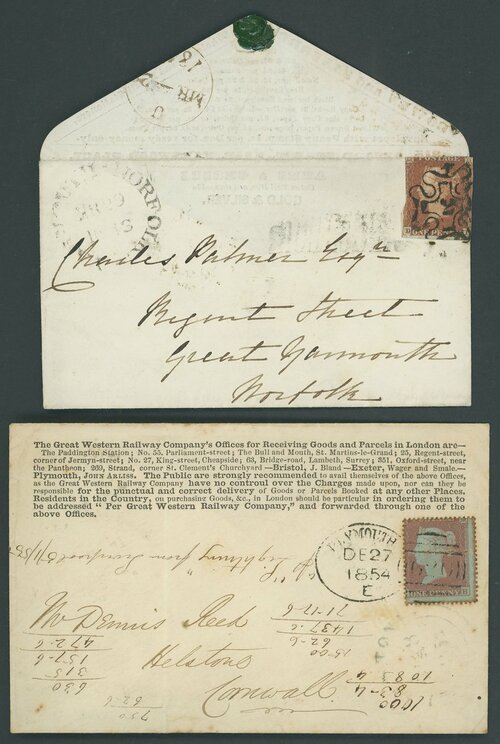 MR
ONE PENNY
Charles Palmer Esqre
Regent Street
Great Yarmouth
Norfolk
The Great Western Railway Company's Offices for Receiving Goods and Parcels in London are—
The Paddington Station; No. 55, Parliament-street; The Bull and Mouth, St. Martins-le-Grand; 25, Regent-street,
corner of Jermyn-street; No. 27, King-street, Cheapside; 63, Bridge-road, Lambeth, Surrey; 351, Oxford-street, near
the Pantheon; 269, Strand, corner St. Clement's Churchyard—Bristol, J. Bland—Exeter, Wager and Smale.—
Plymouth, John Arliss. The Public are strongly recommended to avail themselves of the above Offices,
as the Great Western Railway Company have no controul over the Charges made upon, nor can they be
responsible for the punctual and correct delivery of Goods or Parcels Booked at any other Places.
Residents in the Country, on purchasing Goods, &c., in London should be particular in ordering them to
be addressed "Per Great Western Railway Company," and forwarded through one of the
above Offices.
PLYMOUTH
DE 27
1854
E
ONE PENNY
Mr Dennis Reed
Helston
Cornwall
71-12-6
1437-6
62-6
1500
472-6
157-6
315
630
1083-4
83-4
1000